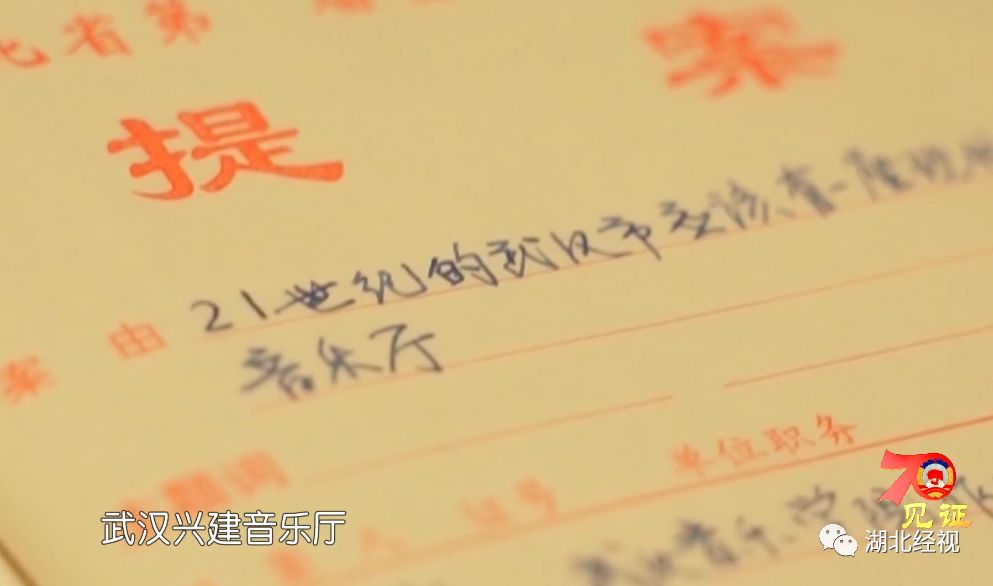 省第
提 案
案由 21世纪的武汉市应该有一座现
音乐厅
主题词
单位职务
武汉音乐学院
武汉兴建音乐厅
70
见证
湖北经视